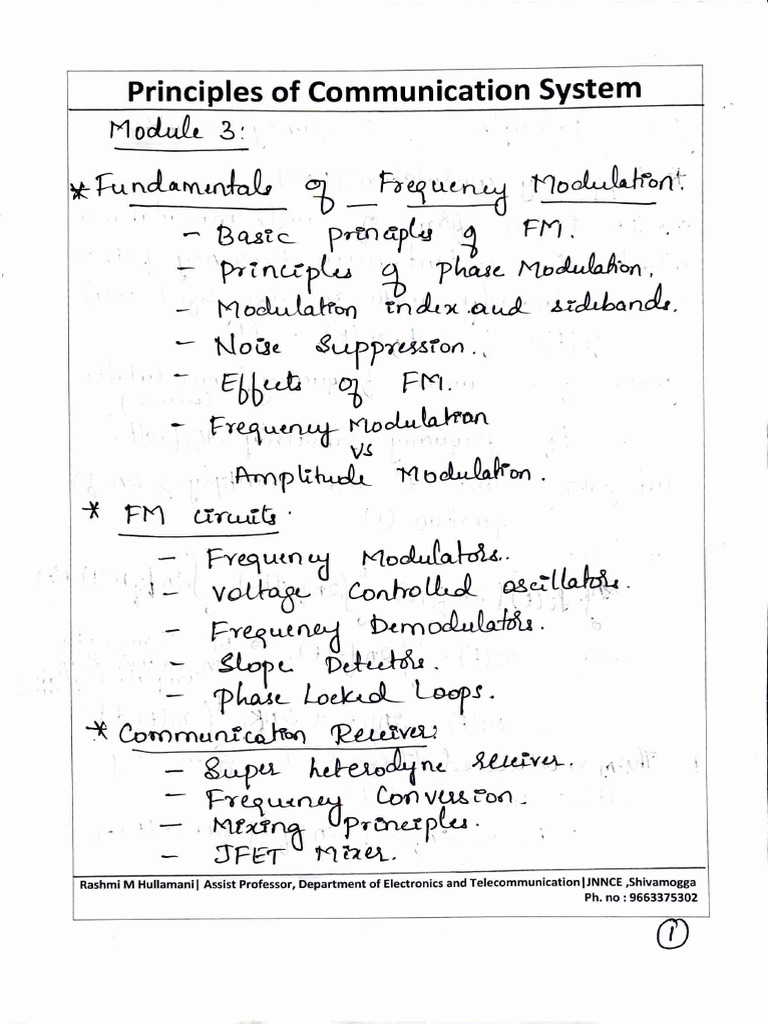 Principles of Communication System
Module 3:
* Fundamentals of Frequency Modulation:
- Basic principles of FM.
- Principles of Phase Modulation.
- Modulation index and sidebands.
- Noise Suppression.
- Effects of FM.
- Frequency Modulation
vs
Amplitude Modulation.
* FM circuits.
- Frequency Modulators.
- Voltage Controlled oscillators.
- Frequency Demodulators.
- Slope Detectors.
- Phase Locked Loops.
* Communication Receiver:
- Super heterodyne receiver.
- Frequency Conversion.
- Mixing Principles.
- JFET Mixer.
Rashmi M Hullamani| Assist Professor, Department of Electronics and Telecommunication|JNNCE ,Shivamogga
Ph. no : 9663375302
1